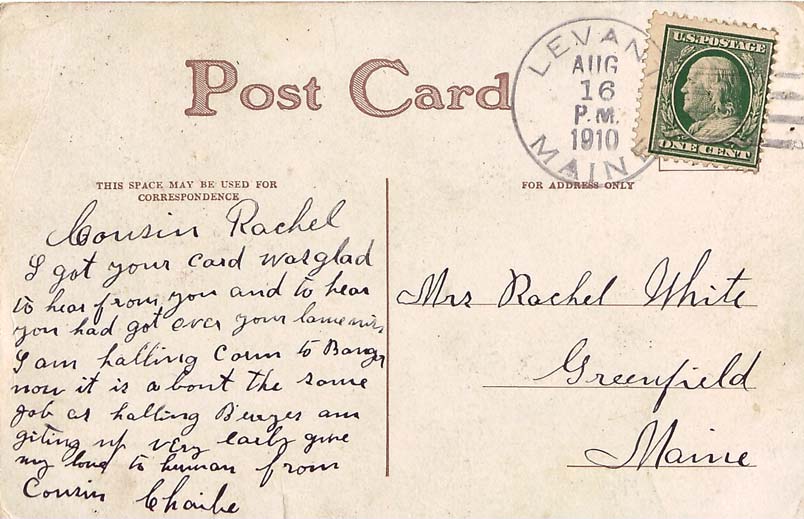 Post Card
LEVANT
AUG
16
P.M.
1910
MAINE
U.S. POSTAGE
ONE CENT
THIS SPACE MAY BE USED FOR
CORRESPONDENCE
FOR ADDRESS ONLY
Cousin Rachel
I got your card was glad
to hear from you and to hear
you had got over your lameniss
I am halling Corn to Bangor
now it is about the same
Job as halling am
giting up very early give
my love to from
Cousin Charlie
Mrs Rachel White
Greenfield
Maine